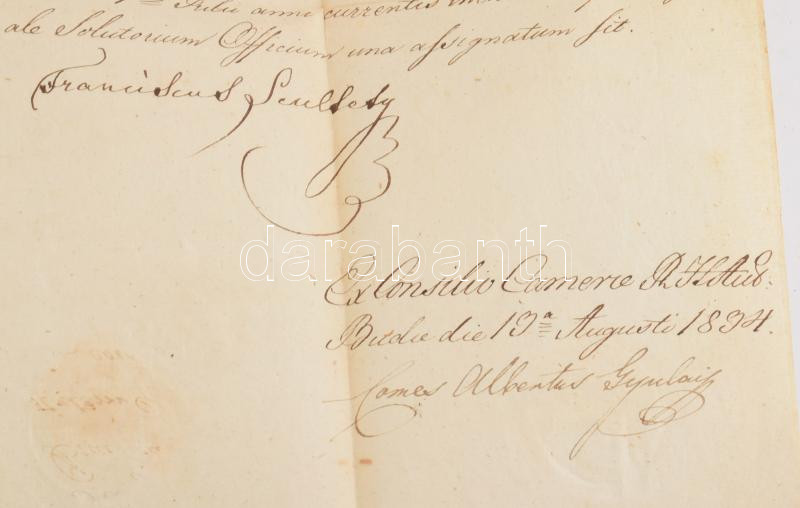 Julii anni currentis
ale Solutorium Officium una assignatum sit.
Franciscus Scultety
darabanth
Ex Consilio Camerae R. H. Aud.
Budae die 13a Augusti 1834.
Comes Albertus Gyulaii